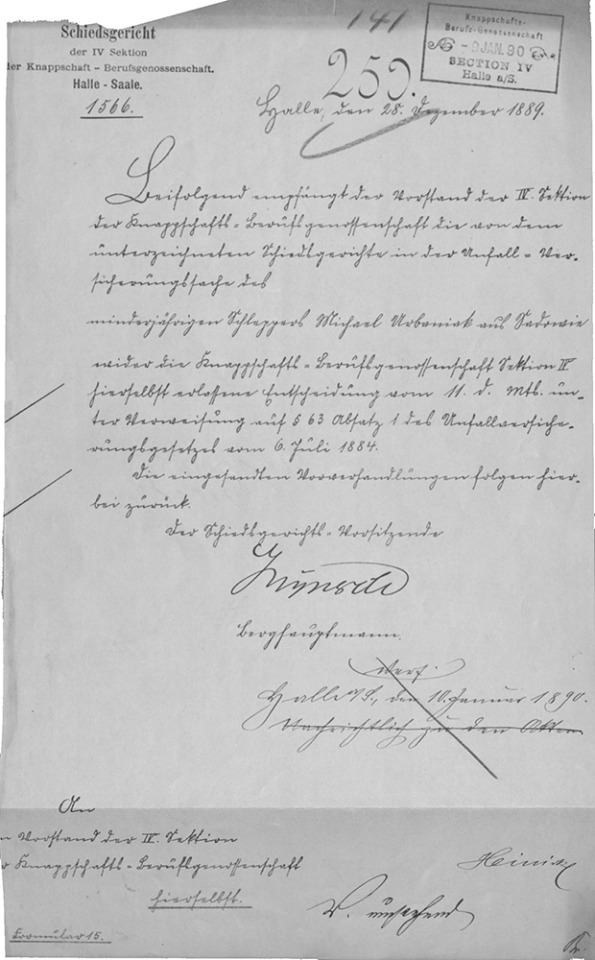 Schiedsgericht
der IV Sektion
der Knappschaft - Berufsgenossenschaft.
Halle - Saale.
1566.
141
259.
Knappschafts-
Berufs-Genossenschaft
- 9 JAN. 90
SECTION IV
Halle a/S.
Halle, den 28. Dezember 1889.
Beifolgend empfängt der Vorstand der IV. Sektion
der Knappschafts-Berufsgenossenschaft die von dem
unterzeichneten Schiedsgerichte in der Unfall-Ver-
sicherungssache des
minderjährigen Schleppers Michael Urbaniak aus Sadowie
wider die Knappschafts-Berufsgenossenschaft Sektion IV
hierselbst erlassene Entscheidung vom 11. d. Mts. un-
ter Verweisung auf § 63 Absatz 1 des Unfallversiche-
rungsgesetzes vom 6. Juli 1884.
Die eingesandten Vorverhandlungen folgen hier-
bei zurück.
Der Schiedsgerichts-Vorsitzende
Berghauptmann.
Verf.
Halle a/S., den 10. Januar 1890.
Nachrichtlich zu den Akten
An
n Vorstand der IV. Sektion
r Knappschafts-Berufsgenossenschaft
hierselbst.
Formular 15.
V. umstehend